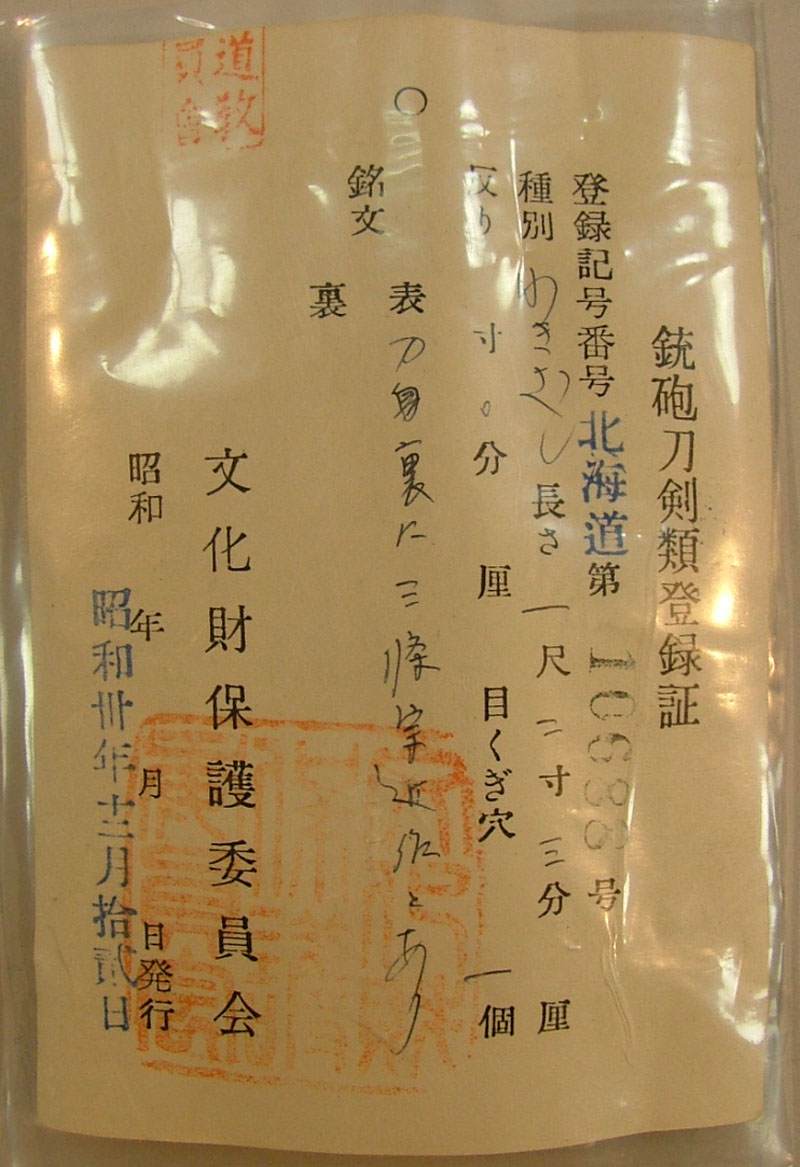 銃砲刀剣類登録証
登録記号番号 北海道 第 号
種別 わきざし 長さ 一尺 二寸 三分 厘
反り 寸 〇分 厘 目くぎ穴 一個
銘文 表 刀身裏に三條宗近作とあり
裏
文化財保護委員会
昭和 年 月 日発行
昭和卅年十二月拾貳日
道教